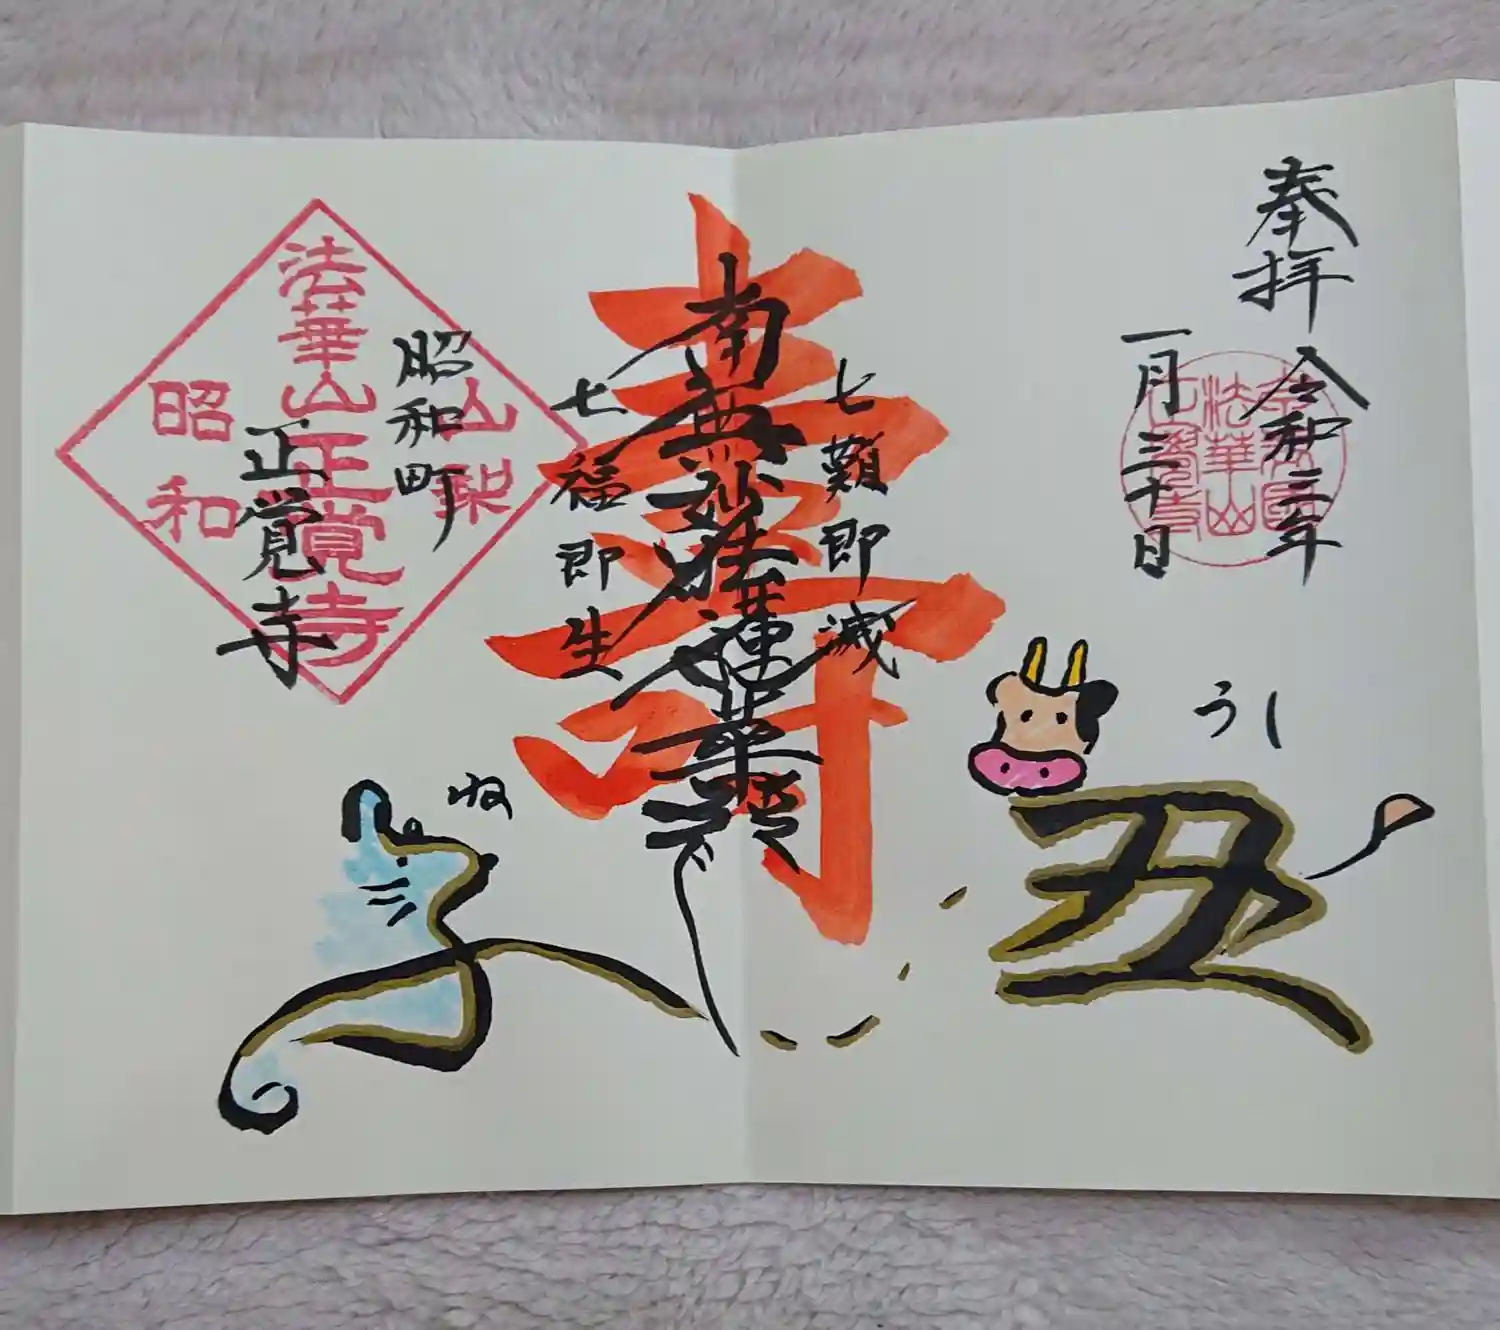 奉拝
令和三年
一月三十日
うし
丑
七難即滅
寿
南無妙法蓮華経
七福即生
ね
子
昭和町
正覚寺
山梨
法華山正覚寺
昭和
法華山